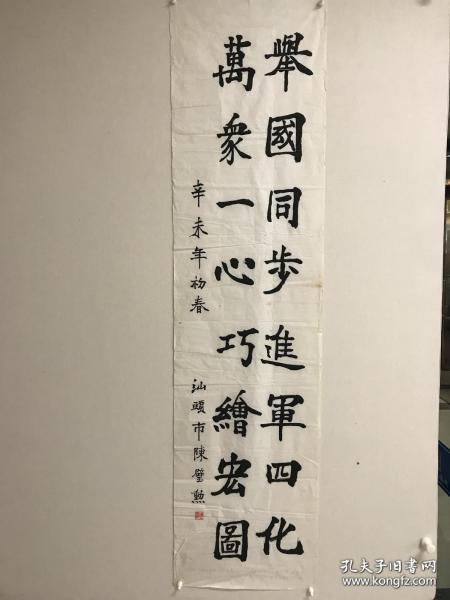 舉國同步進軍四化
萬衆一心巧繪宏圖
辛未年初春
汕頭市陳璧勲
孔夫子旧书网
www.kongfz.com